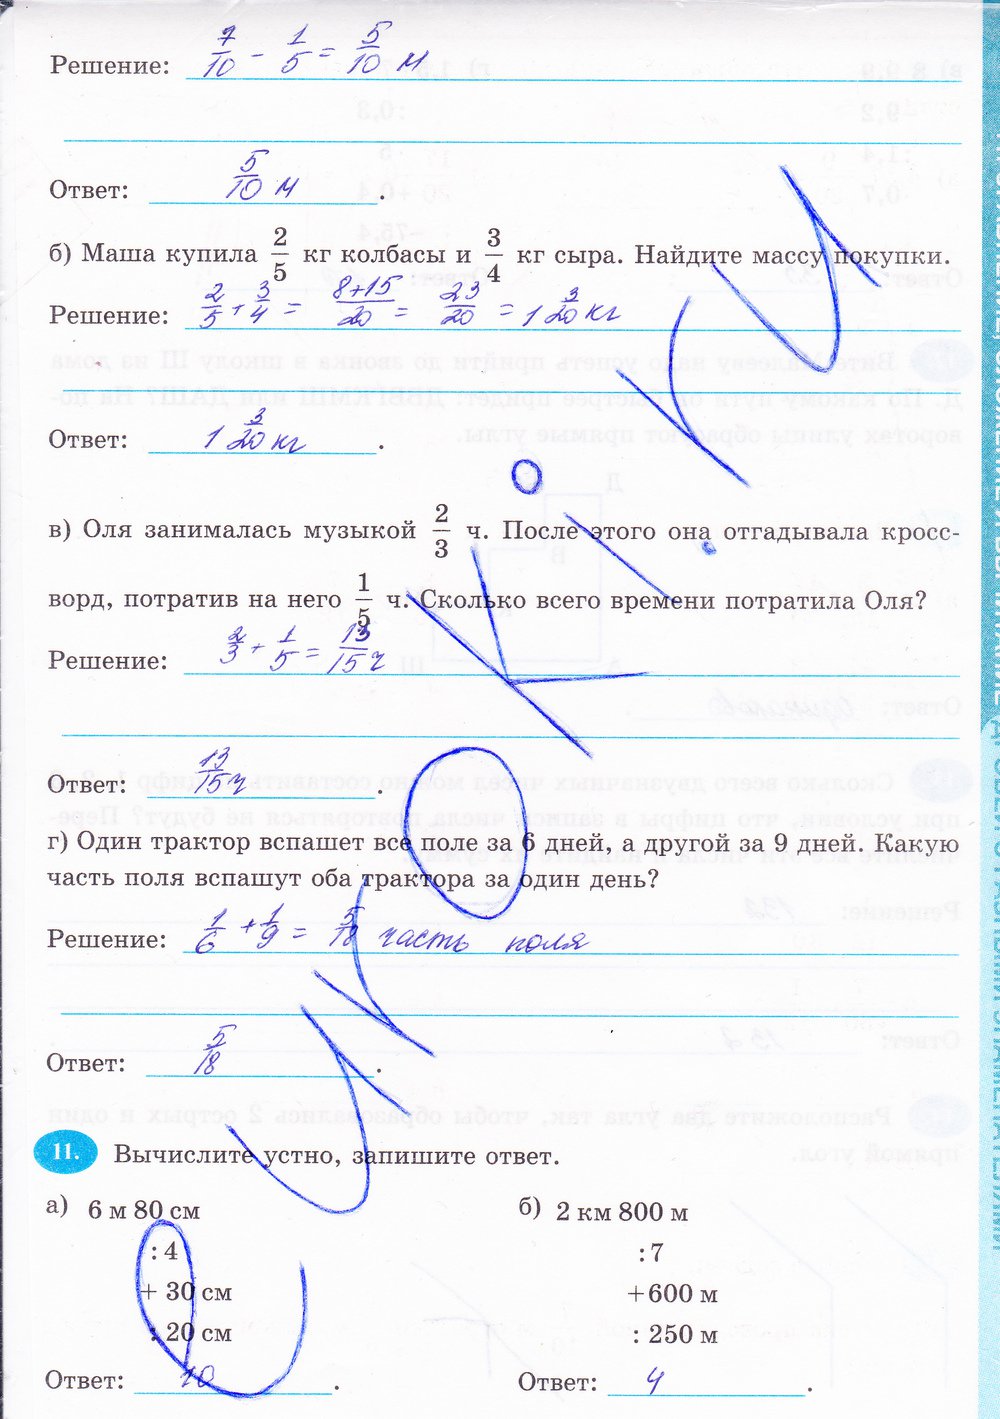 Решение: 7/10 - 1/5 = 5/10 м
Ответ: 5/10 м.
б) Маша купила 2/5 кг колбасы и 3/4 кг сыра. Найдите массу покупки.
Решение: 2/5 + 3/4 = 8+15/20 = 23/20 = 1 3/20 кг
Ответ: 1 3/20 кг.
в) Оля занималась музыкой 2/3 ч. После этого она отгадывала кросс-
ворд, потратив на него 1/5 ч. Сколько всего времени потратила Оля?
Решение: 2/3 + 1/5 = 13/15 ч
Ответ: 13/15 ч.
г) Один трактор вспашет все поле за 6 дней, а другой за 9 дней. Какую
часть поля вспашут оба трактора за один день?
Решение: 1/6 + 1/9 = 5/18 часть поля
Ответ: 5/18.
11. Вычислите устно, запишите ответ.
а) 6 м 80 см
: 4
+ 30 см
: 20 см
Ответ: 10.
б) 2 км 800 м
: 7
+600 м
: 250 м
Ответ: 4.